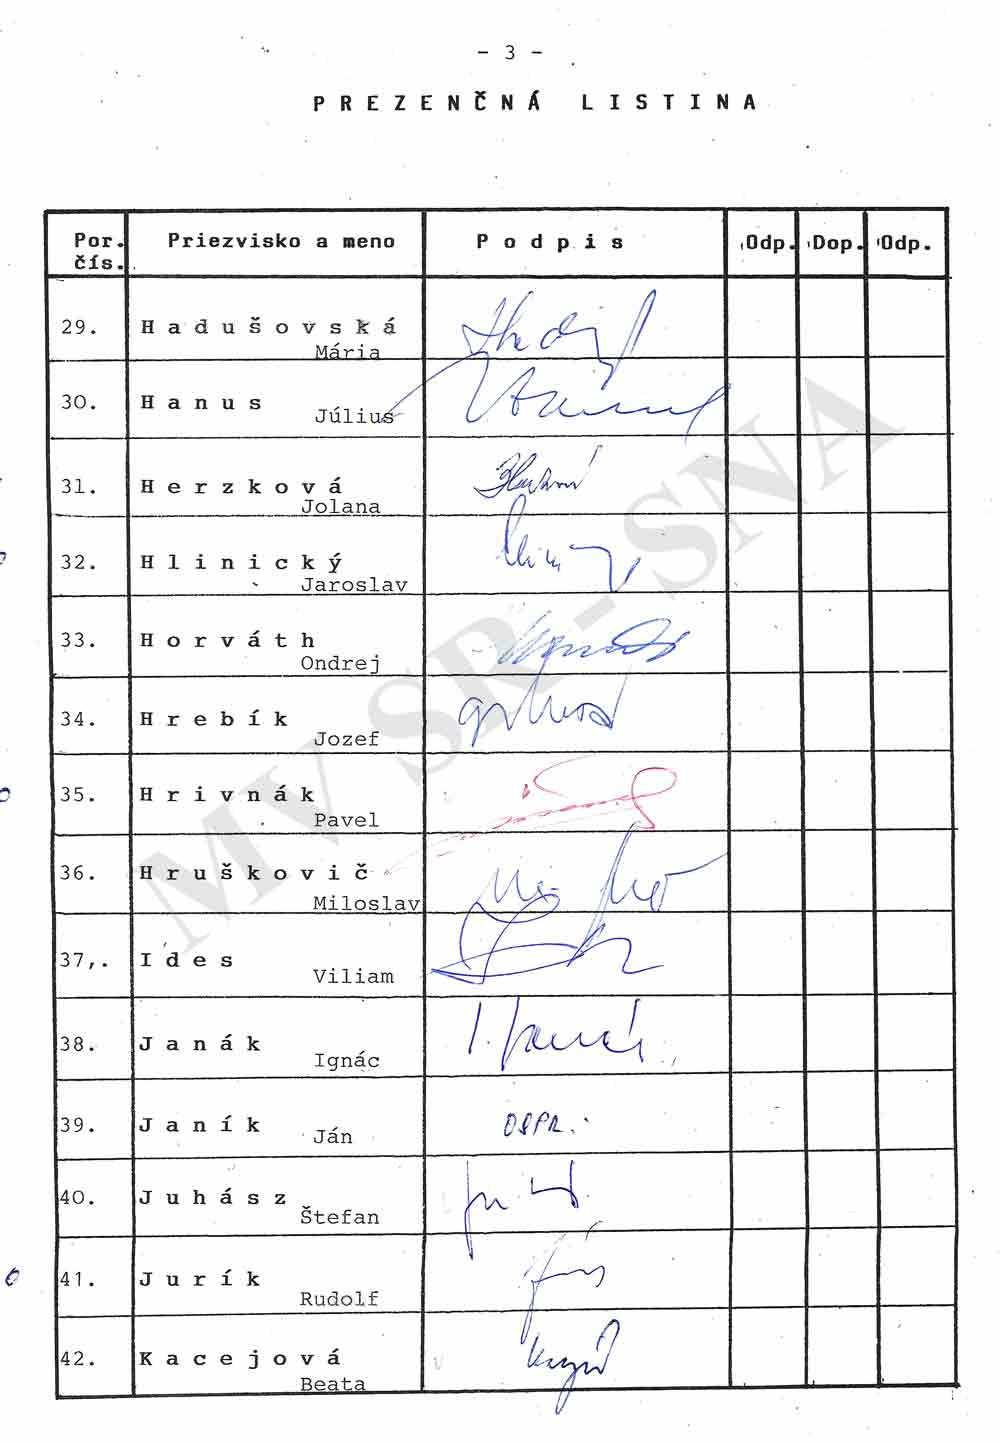 - 3 -
PREZENČNÁ LISTINA
Por. čís. Priezvisko a meno Podpis Odp. Dop. Odp.
29. Hadušovská Mária
30. Hanus Július
31. Herzková Jolana
32. Hlinický Jaroslav
33. Horváth Ondrej
34. Hrebík Jozef
35. Hrivnák Pavel
36. Hruškovič Miloslav
37,. Ides Viliam
38. Janák Ignác
39. Janík Ján OSPR.
40. Juhász Štefan
41. Jurík Rudolf
42. Kacejová Beata
MV SR - SNA